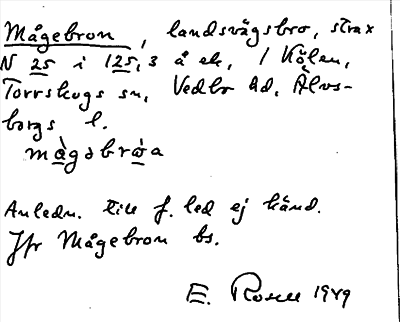 Mågebron, landsvägsbro, strax
N 25 i 125, 3 å ek, / Kölen,
Torrskogs sn, Vedbo hd, Älvs-
borgs l.
mågobrωa
Anledn. till f. led ej känd.
Jfr Mågebron bs.
E. Rosell 1949